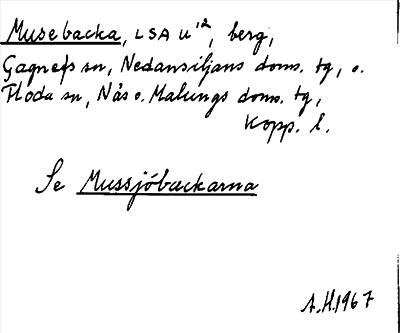 Musebacka, LSA u¹², berg,
Gagnefs sn, Nedansiljans doms. tg, o.
Floda sn, Nås o. Malungs doms. tg,
Kopp. l.
Se Mussjöbackarna
A.H. 1967